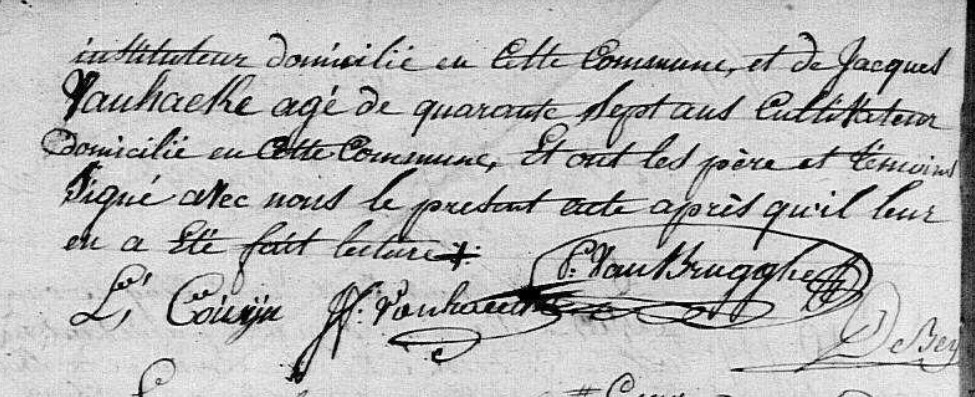 instituteur domicilié en Cette Commune, et de Jacques
Vanhaeke agé de quarante Sept ans Cultivateur
domicilié en Cette Commune, Et ont les père et témoins
Signé avec nous le present acte après qu'il leur
en a Eté fait lecture
P. VanBrugghe
L. J. Vanhaecke
DeBey